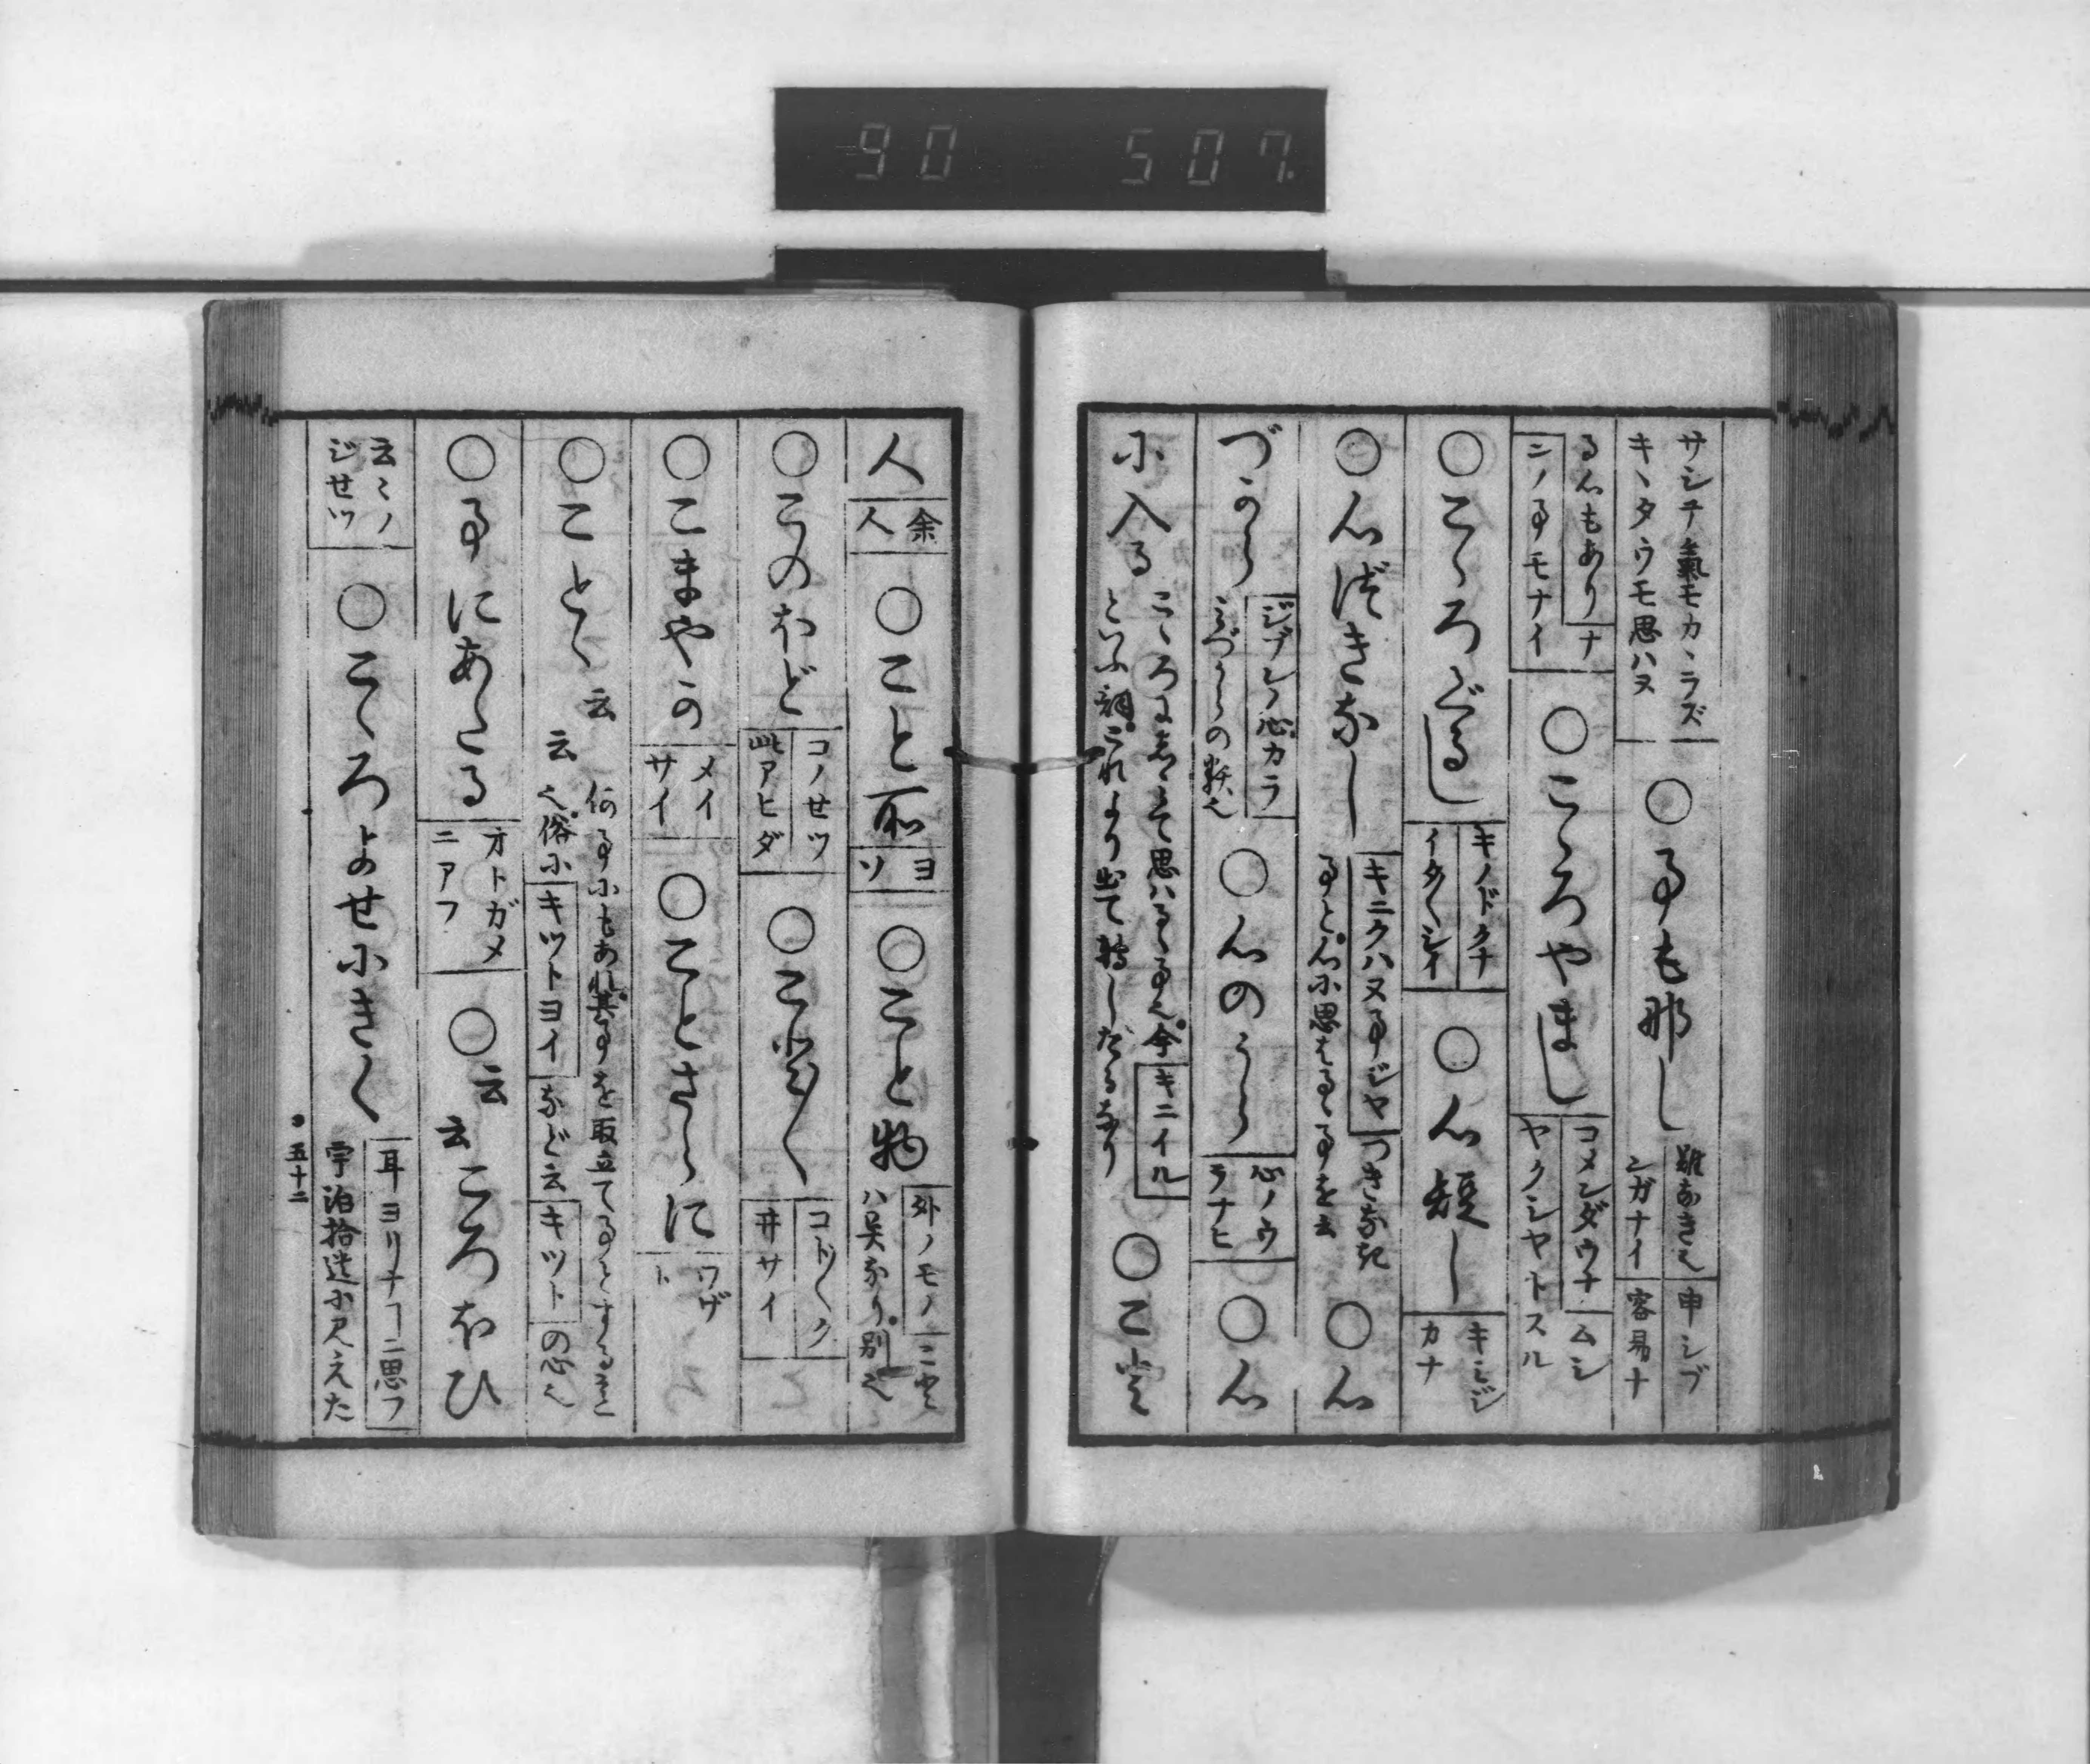 90 507.
サシテ氣モカヽラズ
キヽタウモ思ハヌ
○事も那し
難なき也
シガナイ
申シブ
容易ナ
る心もあり
ナ
ニノ事モナイ
○こゝろやまし
コメンダウナ
ムシ
ヤクシヤトスル
○こゝろぐるし
キノドクナ
イタ〱シイ
○心短し
キミジ
カナ
○心づきなし
キニクハヌ事ジヤ
つきなき
事と心に思はるゝ事を云
○心
づから
ジブンノ心カラ
みづからの類也
○心のうら
心ノウ
ラナヒ
○心
に入る
こゝろにしみて思はるゝ事也今
キニイル
といふ詞これより出て轉したるなり
○こと
人
余
人
○こと所
ヨ
ソ
○こと物
外ノモノ
ハ異なり別也
○このほど
コノせツ
此アヒダ
コト〱ク
井サイ
○こまやか
メイ
サイ
○ことさらに
ワザ
ト
○こと〻云云
何事にもあれ其事を取立てる
也俗に
キツトヨイ
など云
キツト
の心也
○事にあたる
オトガメ
ニアフ
○云云ころほひ
云〻ノ
ジせツ
○こゝろよせにきく
耳ヨリナヿニ思フ
宇治拾遺に見えた
五十二